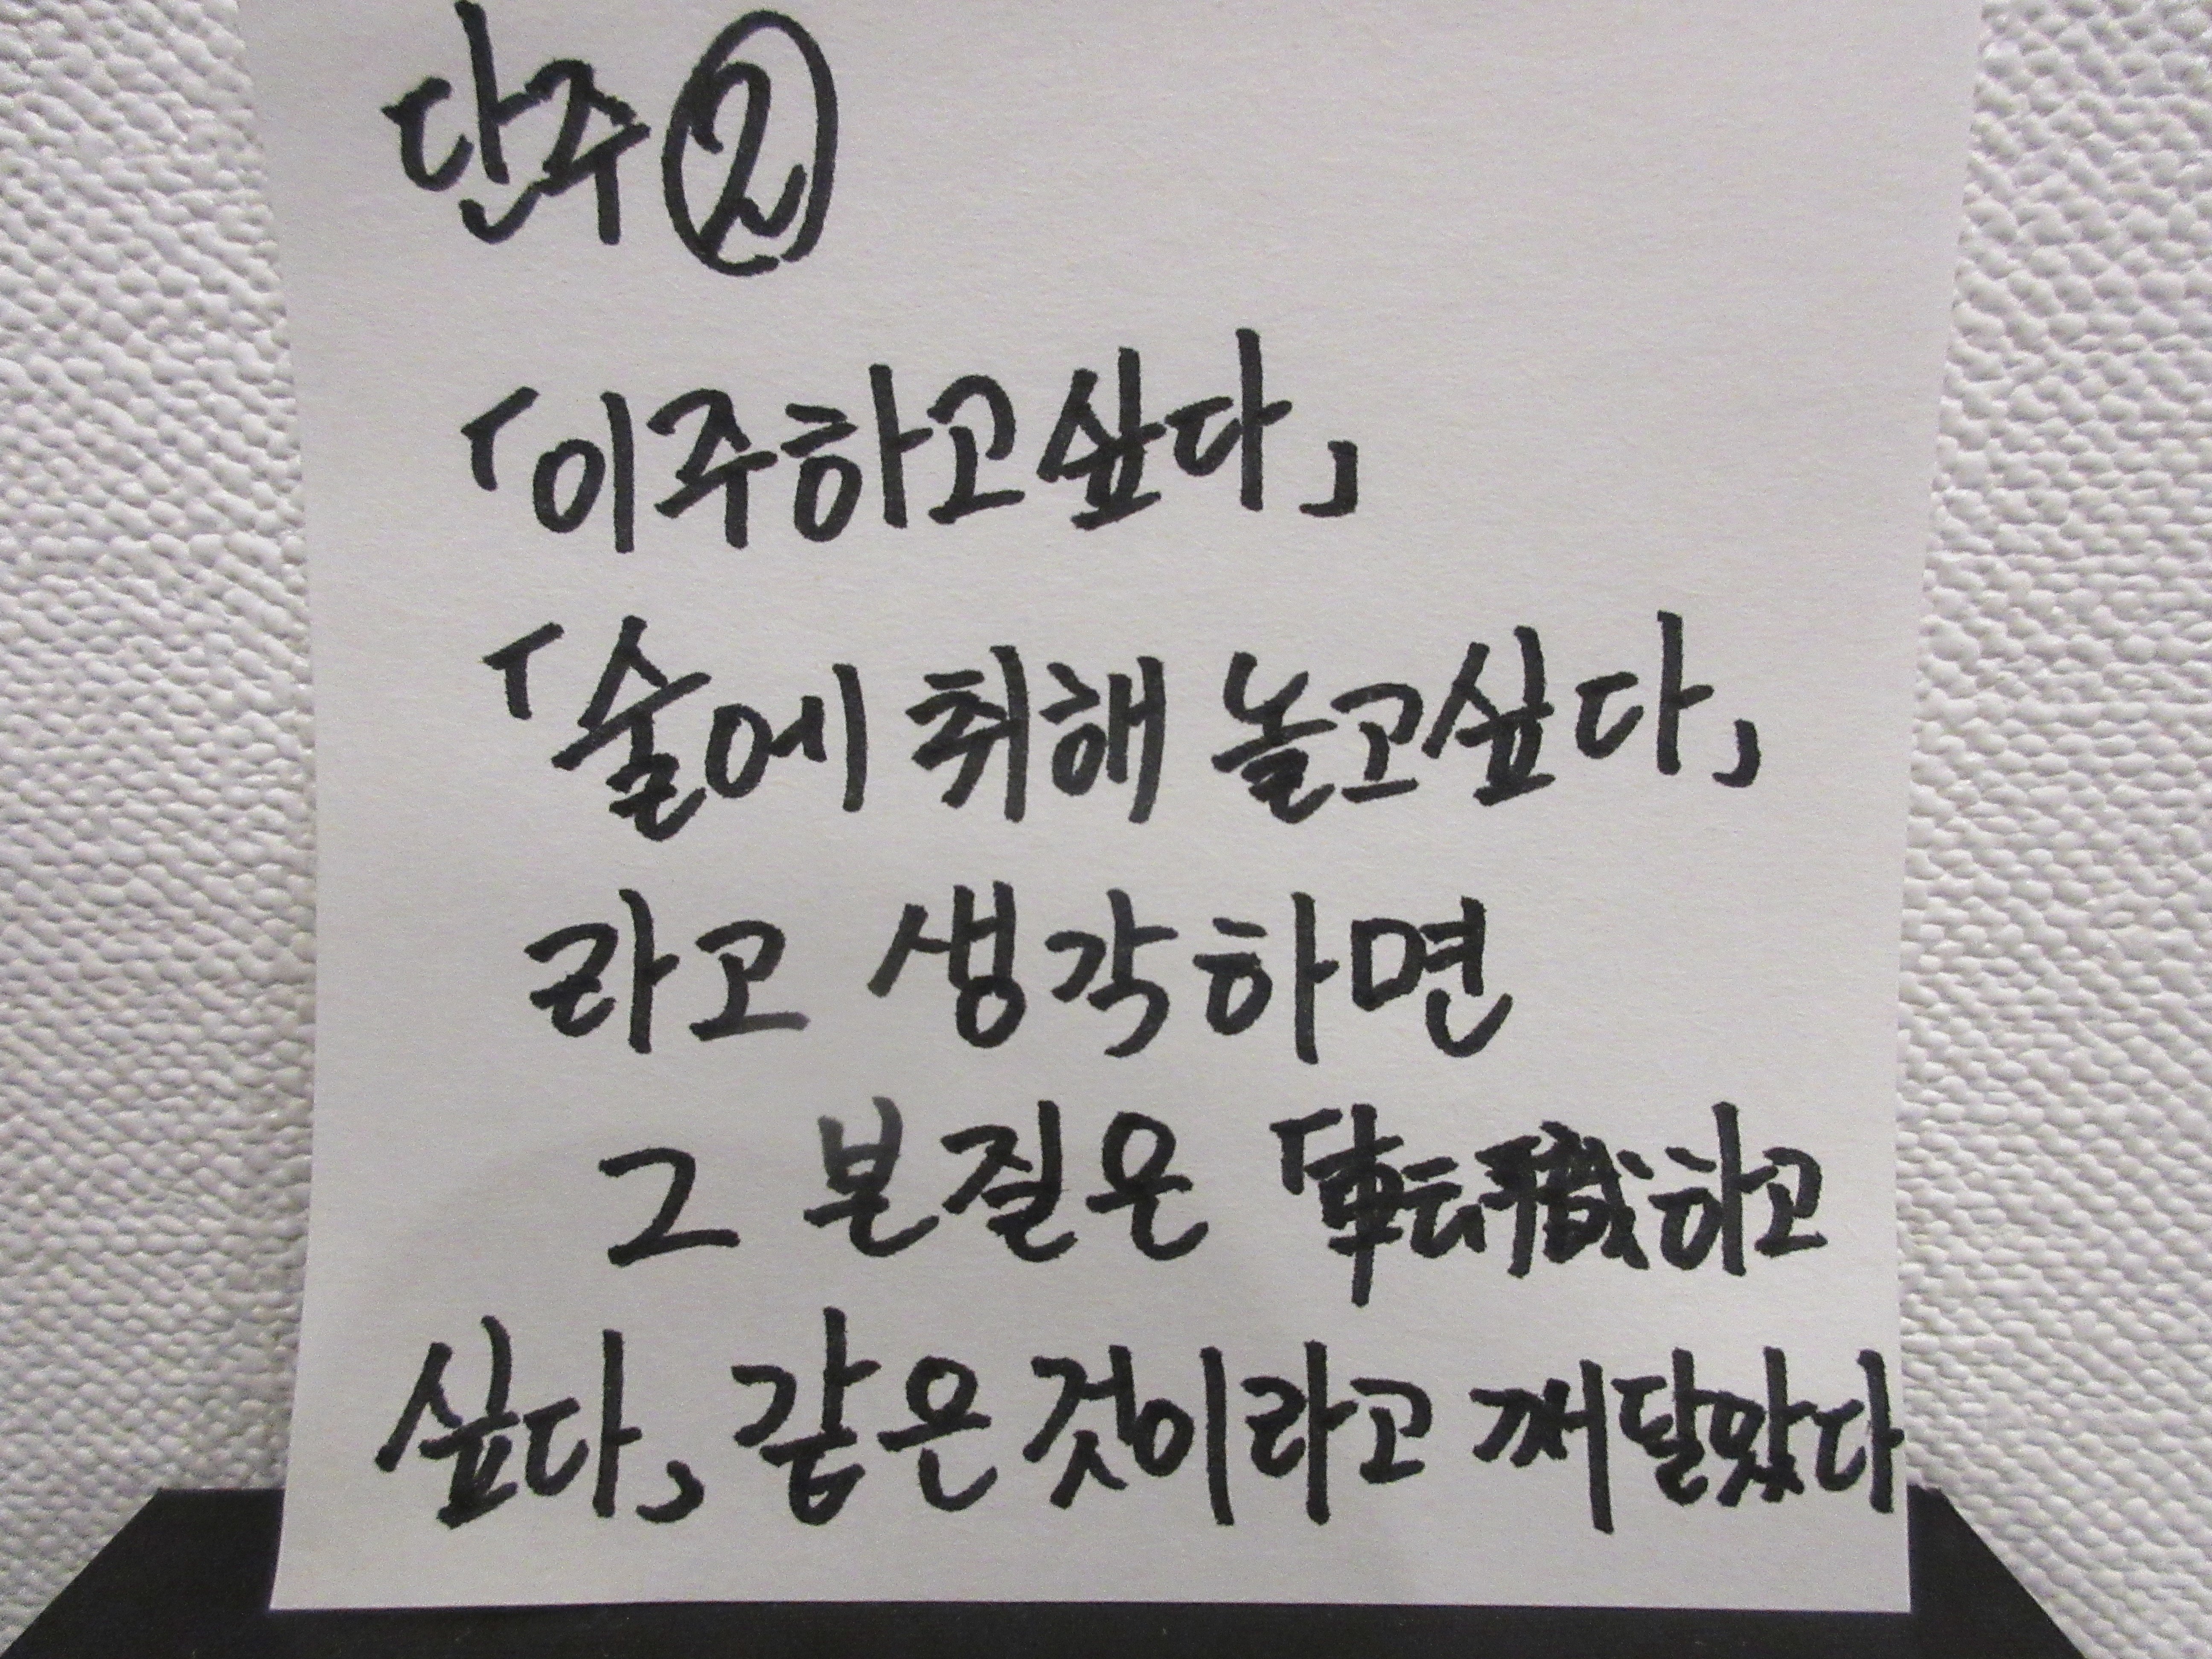 단주②
「이주하고싶다」
「술에 취해 놀고싶다」
라고 생각하면
그 본질은 「転職하고
싶다」 같은 것이라고 깨달았다